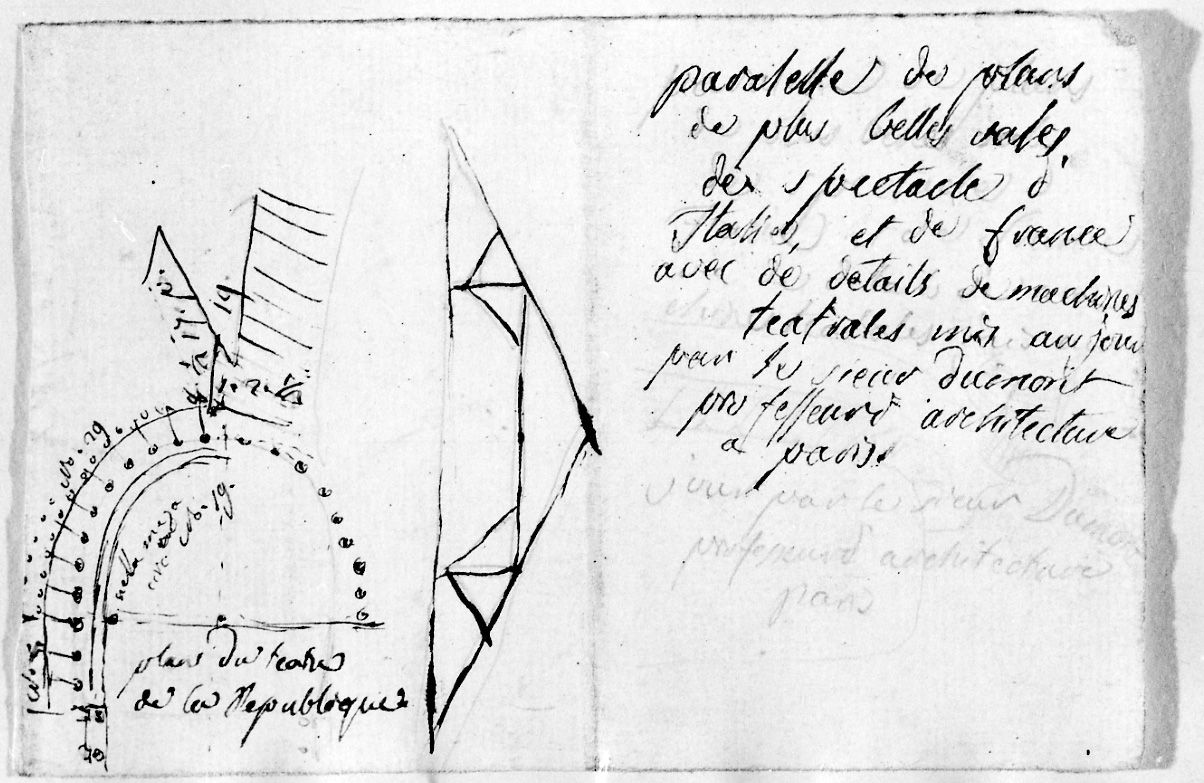 paralelle de plans
de plus belles sales
des spectacle d'
Italie, et de france
avec de details de machines
teatrales mis au jour
par le sieur Dumont
professeur d'architecture
a paris.
jour par le sieur Dumon
professeur d'architecture
paris
No. 19
19
No. 19.
nella meza
plans du teatre
de la Republique